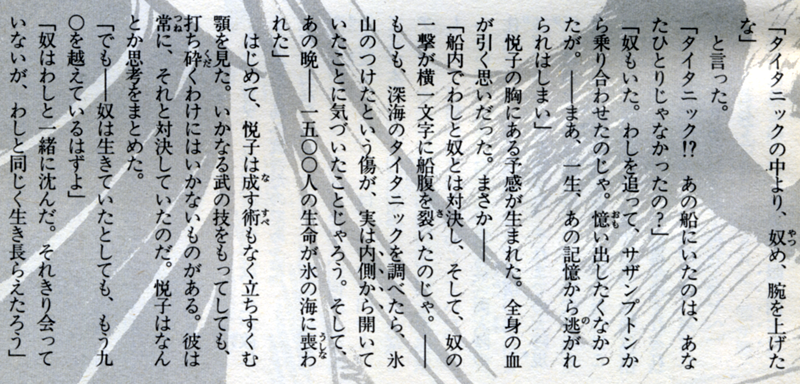 「タイタニックの中より、奴め、腕を上げた
な」
と言った。
「タイタニック!? あの船にいたのは、あな
たひとりじゃなかったの？」
「奴もいた。わしを追って、サザンプトンか
ら乗り合わせたのじゃ。憶い出したくなかっ
たが。――まあ、一生、あの記憶から逃がれ
られはしまい」
悦子の胸にある予感が生まれた。全身の血
が引く思いだった。まさか――
「船内でわしと奴とは対決し、そして、奴の
一撃が横一文字に船腹を裂いたのじゃ。――
もしも、深海のタイタニックを調べたら、氷
山のつけたという傷が、実は内側から開いて
いたことに気づいたことじゃろう。そして、
あの晩――一五〇〇人の生命が氷の海に喪わ
れた」
はじめて、悦子は成す術もなく立ちすくむ
顎を見た。いかなる武の技をもってしても、
打ち砕くわけにはいかないものがある。彼は
常に、それと対決していたのだ。悦子はなん
とか思考をまとめた。
「でも――奴は生きていたとしても、もう九
〇を越えているはずよ」
「奴はわしと一緒に沈んだ。それきり会って
いないが、わしと同じく生き長らえたろう」